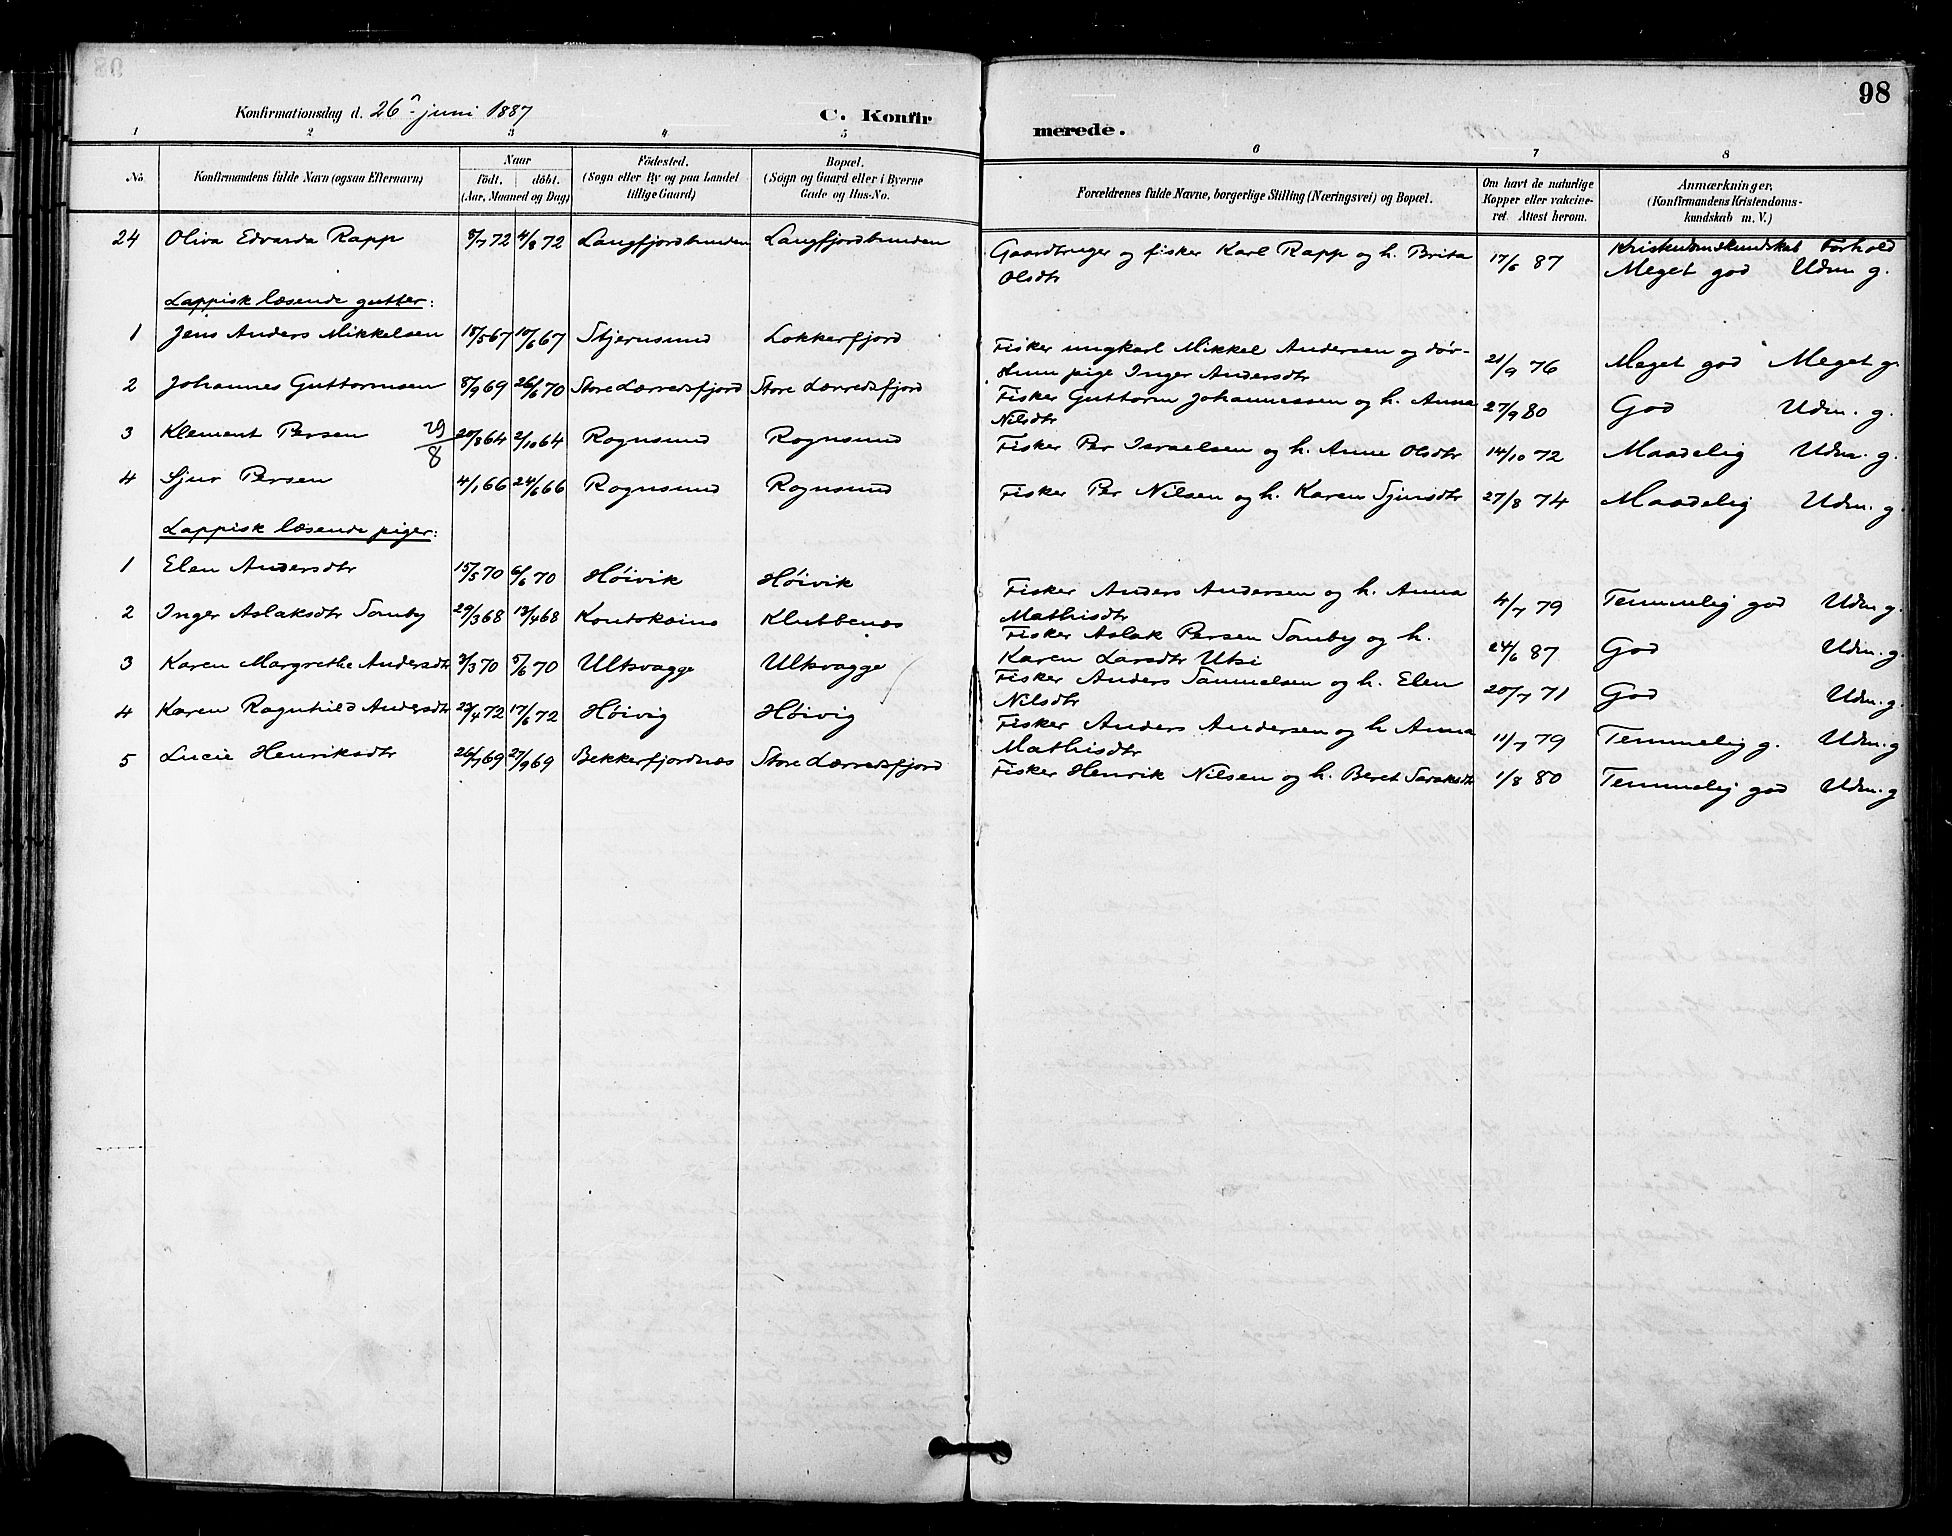 98
Konfirmationsdag d. 26de juni 1887
C. Konfirmerede.
1 2 3 4 5 6 7 8
No. Konfirmandens fulde Navn (ogsaa Efternavn) Naar födt. döbt. (Aar, Maaned og Dag) Födested. (Sogn eller By og paa Landet tillige Gaard) Bopæl. (Sogn og Gaard eller i Byerne Gade og Hus-No. Forældrenes fulde Navne, borgerlige Stilling (Næringsvei) og Bopæl. Om havt de naturlige Kopper eller vakcineret. Attest herom. Anmærkninger. (Konfirmandens Kristendomskundskab m. V.)
Kristendomskundskab Forhold
24 Oliva Edvarda Rapp 8/7 72 4/8 72 Langfjordbunden Langfjordbunden Gaardbruger og fisker Karl Rapp og h. Brita Olsdtr 17/6 87 Meget god Udm. g.
Lappisk læsende gutter:
1 Jens Anders Mikkelsen 18/5 67 10/6 67 Stjernsund Lokkerfjord Fisker ungkarl Mikkel Andersen og pige Inger Andersdtr 21/9 76 Meget god Meget g.
2 Johannes Guttormsen 8/9 69 26/6 70 Store Lærredsfjord Store Lærredsfjord Fisker Guttorm Johannessen og h. Anna Nilsdtr 27/9 80 God Udm. g.
3 Klement Persen 29/8 20/8 64 2/10 64 Rognsund Rognsund Fisker Per Israelsen og h. Anne Olsdtr 14/10 72 Maadelig Udm. g.
4 Sjur Persen 4/1 66 24/6 66 Rognsund Rognsund Fisker Per Nilsen og h. Karen Sjursdtr 27/8 74 Maadelig Udm. g.
Lappisk læsende piger:
1 Elen Andersdtr 15/5 70 6/6 70 Høivik Høivik Fisker Anders Andersen og h. Anna Mathisdtr 4/7 79 Temmelig god Udm. g.
2 Inger Aslaksdtr Somby 29/3 68 13/4 68 Koutokeino Klubbenæs Fisker Aslak Persen Somby og h. Karen Larsdtr Utsi 24/6 87 God Udm. g.
3 Karen Margrethe Andersdtr 3/3 70 5/6 70 Ulksvagge Ulksvagge Fisker Anders Samuelsen og h. Elen Nilsdtr 20/7 71 God Udm. g.
4 Karen Ragnhild Andersdtr 22/4 72 17/6 72 Høivig Høivig Fisker Anders Andersen og h Anna Mathisdtr 11/7 79 Temmelig g. Udm. g
5 Lucie Henriksdtr 26/7 69 27/9 69 Bekkerfjordnæs Store Lærredsfjord Fisker Henrik Nilsen og h. Beret Saraksdtr 1/8 80 Temmelig god Udm. g